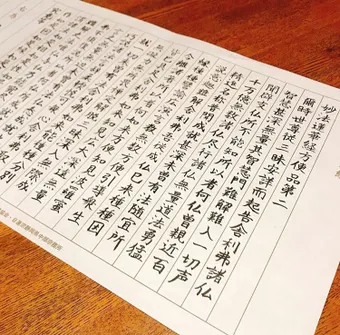 妙法蓮華経方便品第二
爾時世尊従三昧安詳而起告舎利弗諸仏
智慧甚深無量其智慧門難解難入一切声
聞辟支仏所不能知所以者何仏曽親近百
千万億無数諸仏尽行諸仏無量道法勇猛
精進名称普聞成就甚深未曽有法随宜所
説意趣難解舎利弗吾従成仏已来種種因
縁種種譬喩広演言教無数方便引導衆生
令離諸著所以者何如来方便知見波羅蜜
皆已具足舎利弗如来知見広大深遠無量
無礙力無所畏禅定解脱三昧深入無際
就一切未曽有法舎利弗如来能種種分別